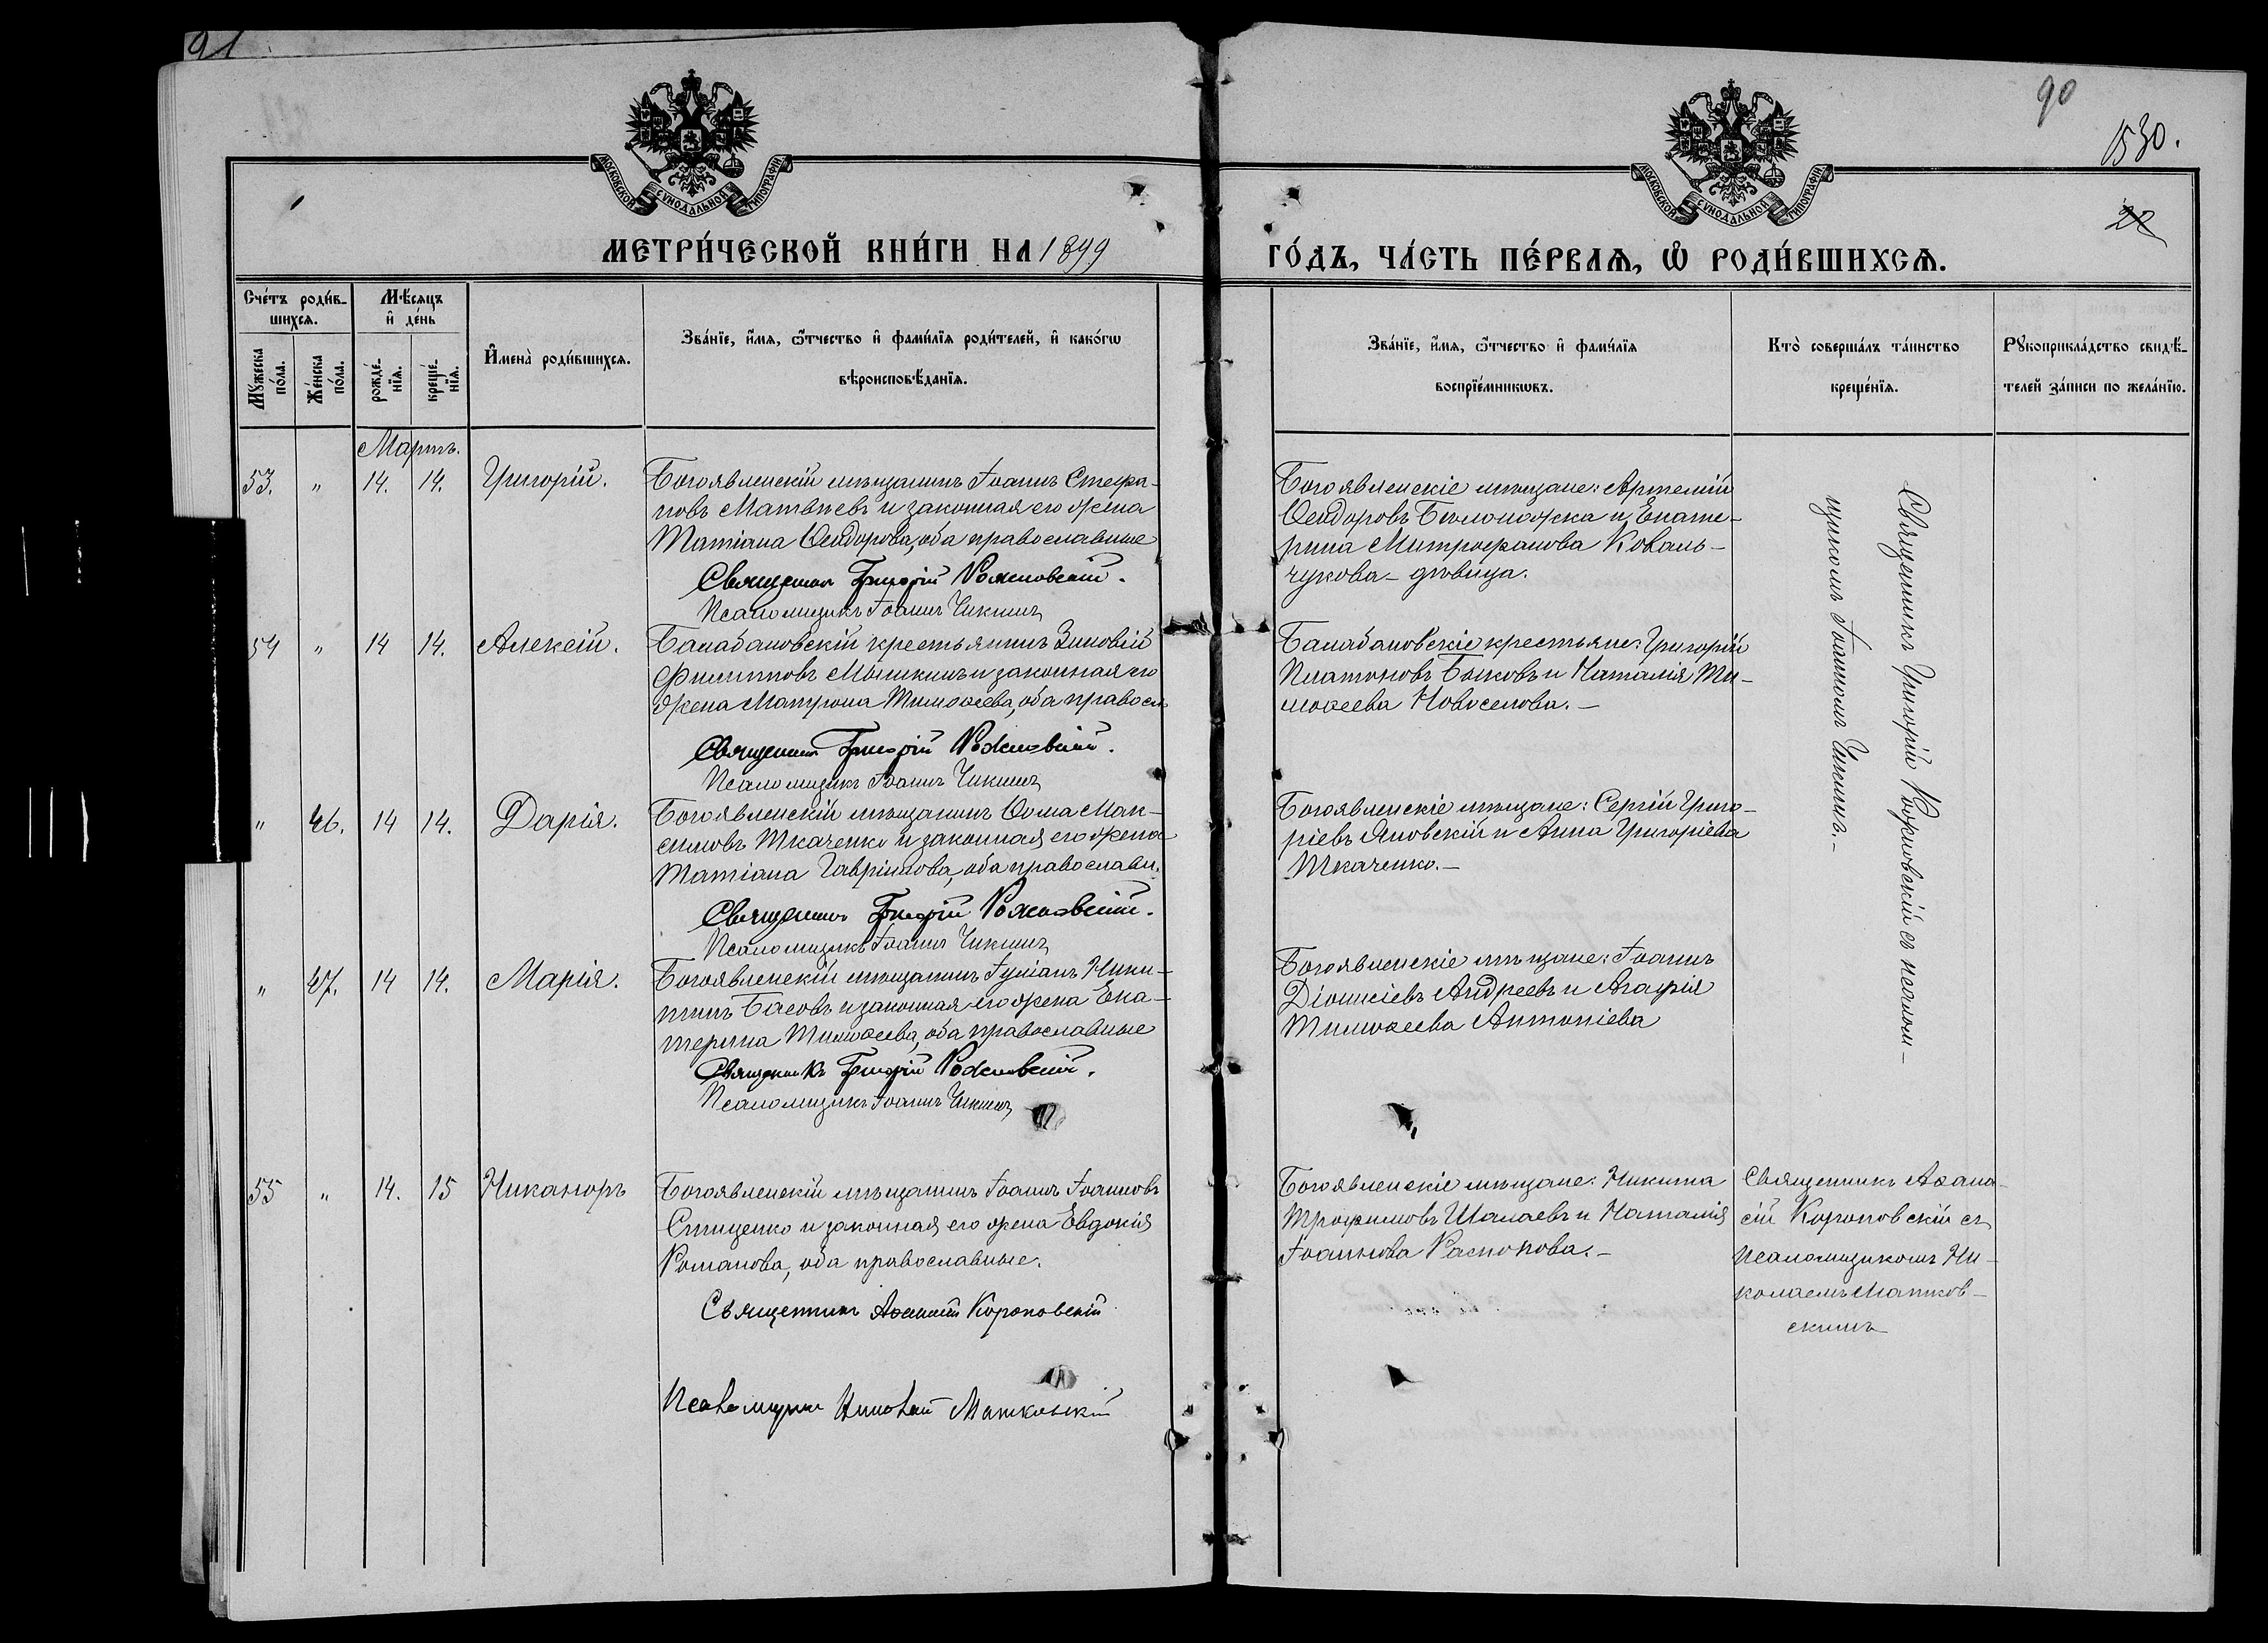 91
90
1530.
22
МОСКОВСКОЙ СѴНОДАЛЬНОЙ ТИПОГРАФІИ
МОСКОВСКОЙ СѴНОДАЛЬНОЙ ТИПОГРАФІИ
МЕТРИ́ЧЕСКОЙ КНИ́ГИ НА 1899
ГО́ДЪ, ЧА́СТЬ ПЕ́РВАѦ, Ѡ РОДИ́ВШИХСѦ.
Сче́тъ роди́в-
шихсѧ.
Мѣ́сѧцъ
и҆ де́нь
Мꙋ́жеска
по́ла.
Же́нска
по́ла.
рожде́-
нїѧ.
креще́-
нїѧ.
И҆мена̀ роди́вшихсѧ.
Зва́нїе, и҆́мѧ, ѻ҆́тчество и҆ фами́лїѧ роди́телей, и҆ како́гѡ
вѣроисповѣ́данїѧ.
Зва́нїе, и҆́мѧ, ѻ҆́тчество и҆ фами́лїѧ
воспрїе́мникѡвъ.
Кто̀ соверша́лъ та́инство
креще́нїѧ.
Рꙋкоприкла́дство свидѣ́-
телей за́писи по жела́нїю.
Мартъ.
53. " 14. 14. Григорій.
Богоявленскій мѣщанинъ Іоаннъ Стефа-
новъ Матвѣевъ и законная его жена
Татіана Ѳеодорова, оба православные
Священникъ Григорій Рожновскій.
Псаломщикъ Іоаннъ Чикинъ
Богоявленскіе мѣщане: Артемій
Ѳеодоровъ Бѣлоножка и Екате-
рина Митрофанова Коваль-
чукова - дѣвица.
Священникъ Григорій Рожновскій съ псалом-
щикомъ Іоанномъ Чикинымъ.-
54 " 14 14. Алексій.
Балабановскій крестьянинъ Зиновій
Филипповъ Мышкинъ и законная его
жена Матрона Тимоѳеева, оба правосл
Священникъ Григорій Рожновскій.
Псаломщикъ Іоаннъ Чикинъ
Балабановскіе крестьяне: Григорій
Платоновъ Быковъ и Наталія Ти-
моѳеева Новоселова.-
" 46. 14 14. Дарія.
Богоявленскій мѣщанинъ Ѳома Мак-
симовъ Ткаченко и законная его жена
Татіана Гавріилова, оба православн.
Священникъ Григорій Рожновскій.
Псаломщикъ Іоаннъ Чикинъ
Богоявленскіе мѣщане: Сергій Григо-
ріевъ Яновскій и Анна Григоріева
Ткаченко.-
" 47. 14 14. Марія.
Богоявленскій мѣщанинъ Іуліанъ Ники-
тинъ Басовъ и законная его жена Ека-
терина Тимоѳеева, оба православные
Священникъ Григорій Рожновскій.
Псаломщикъ Іоаннъ Чикинъ
Богоявленскіе мѣщане: Іоаннъ
Діонисіевъ Андреевъ и Агафія
Тимоѳеева Антоніева
55 " 14. 15 Никаноръ
Богоявленскій мѣщанинъ Іоаннъ Іоанновъ
Стищенко и законная его жена Евдокія
Романова, оба православные.
Священникъ Аѳанасій Короповскій
Псаломщикъ Николай Матковскій
Богоявленскіе мѣщане: Никита
Трофимовъ Шалаевъ и Наталія
Іоаннова Распопова.-
Священникъ Аѳана-
сій Короповскій съ
псаломщикомъ Ни-
колаемъ Матков-
скимъ